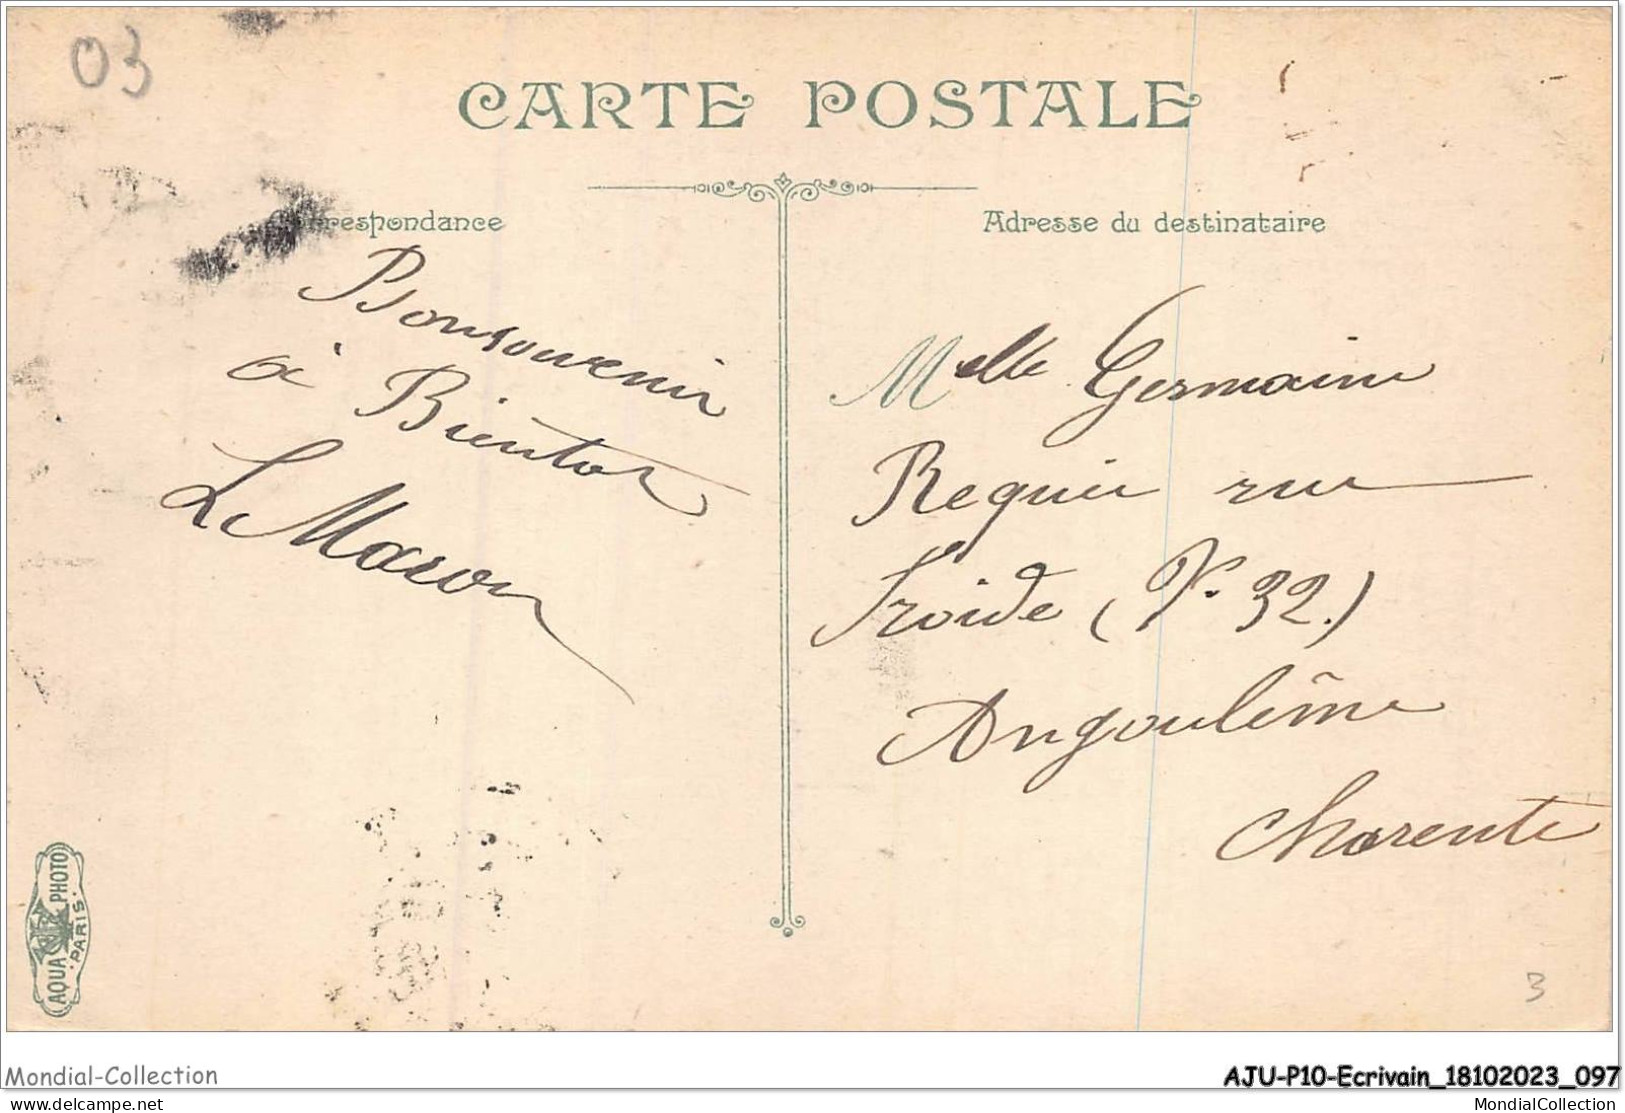 03
CARTE POSTALE
Correspondance
Adresse du destinataire
Bonsouvenir
à Bientot
L Macon
Melle Germaine
Requier rue
Froide (N. 32.)
Angoulême
Charente
AQUA PHOTO
PARIS
3
Mondial-Collection
AJU-P10-Ecrivain_18102023_097
delcampe.net
MondialCollection